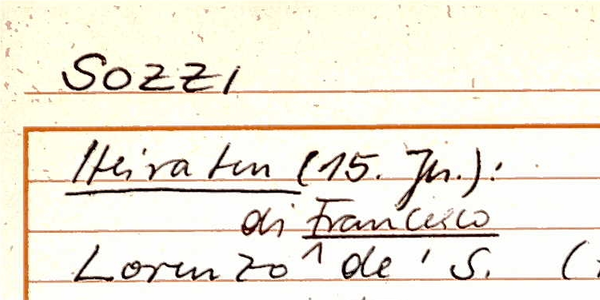 Sozzi
Heiraten (15. Jh.):
di Francesco
Lorenzo ^ de' S. (